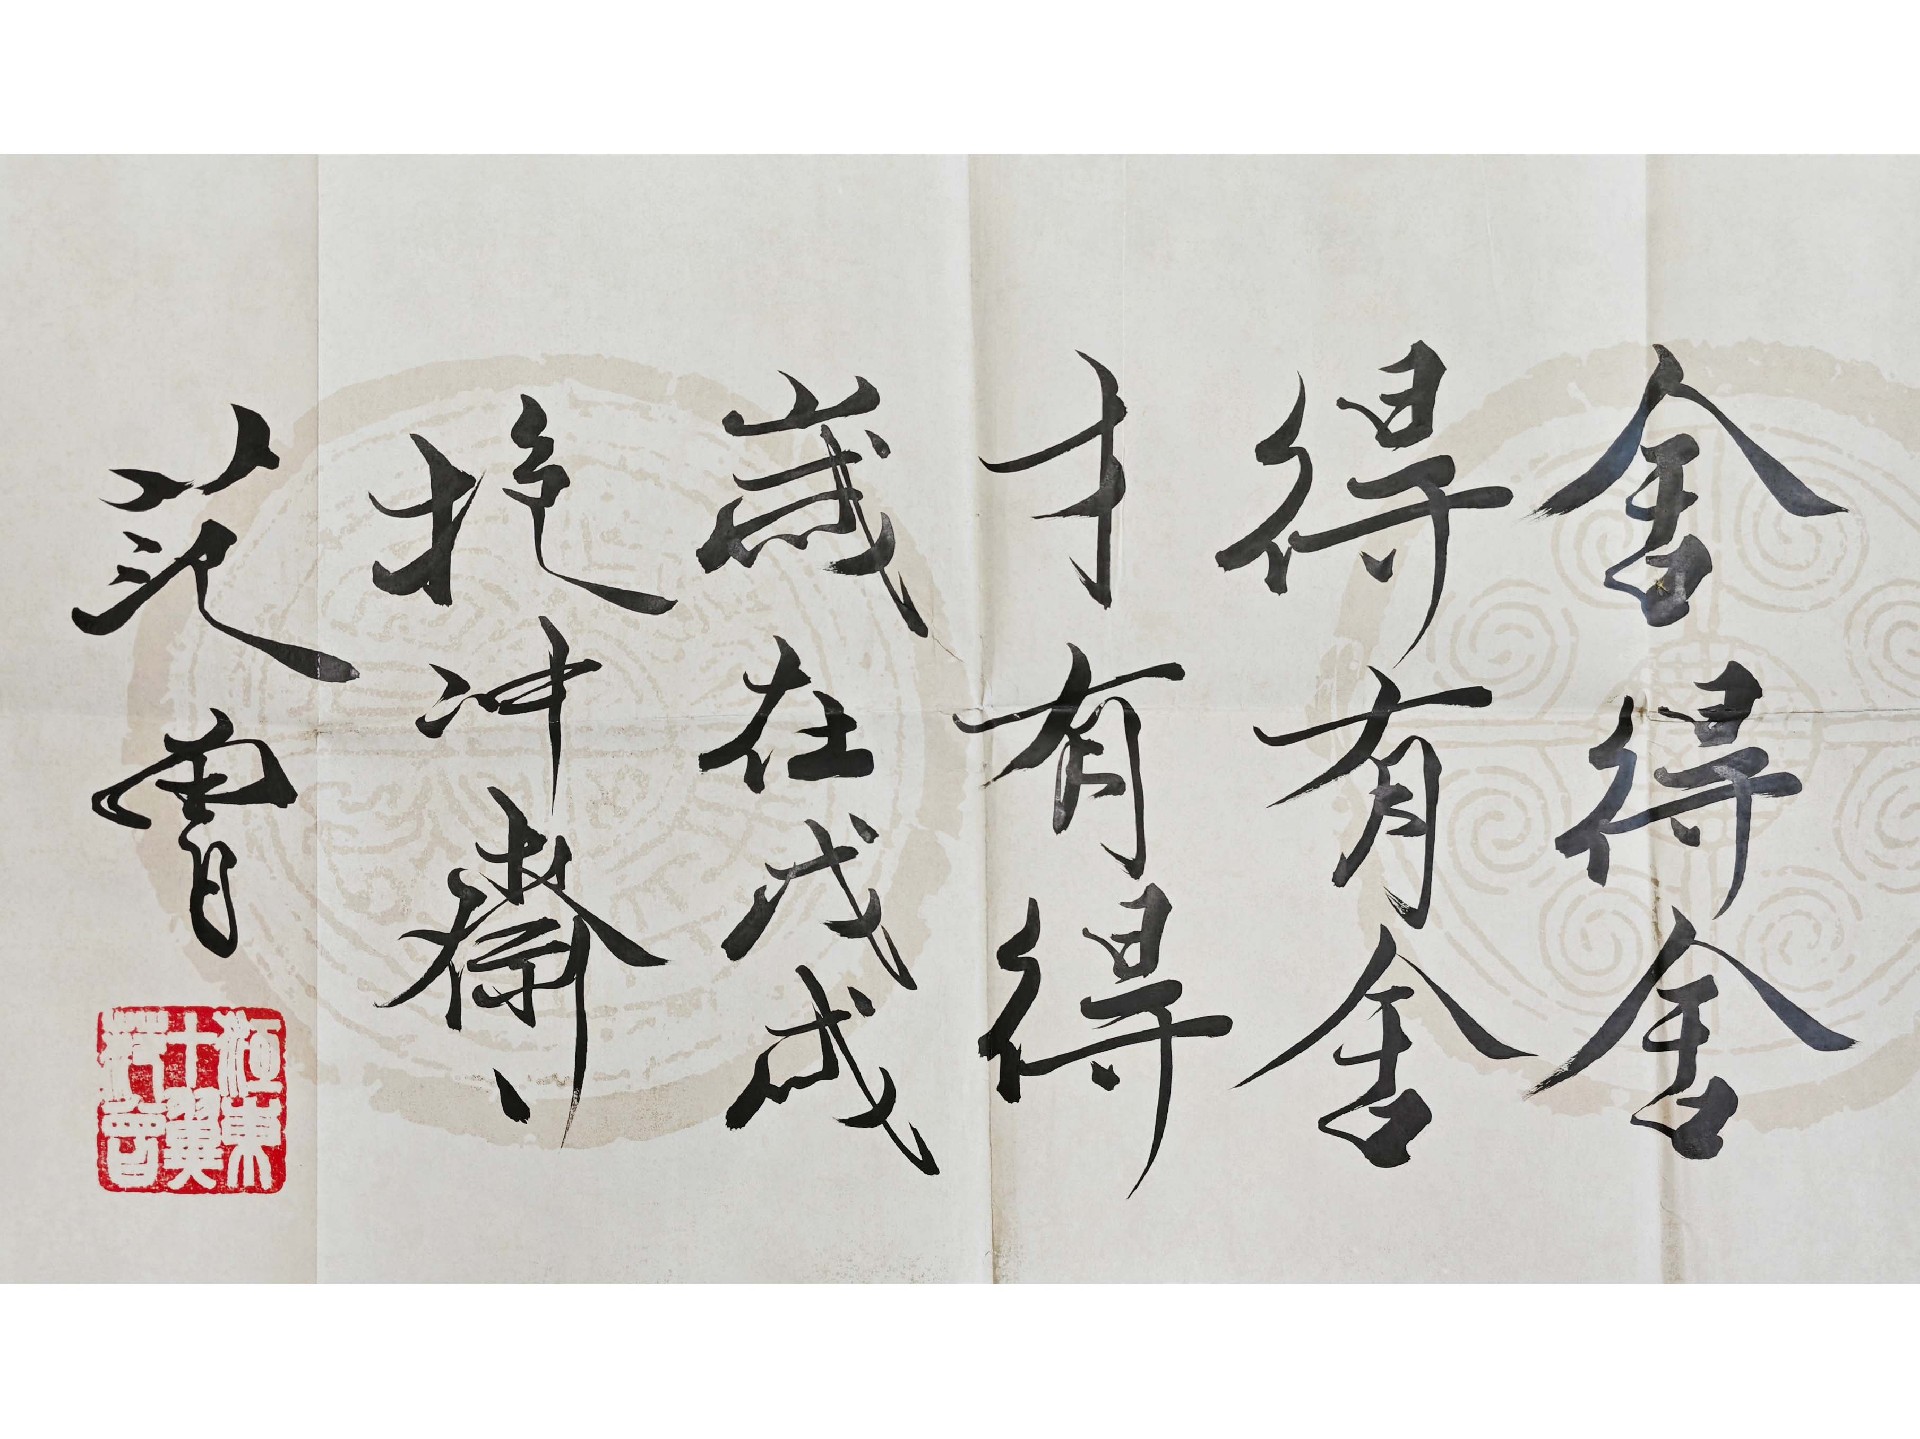 舍得舍
得有舍
才有得
歲在戊戌
抱冲齋
范曾
江東
十翼
范曾